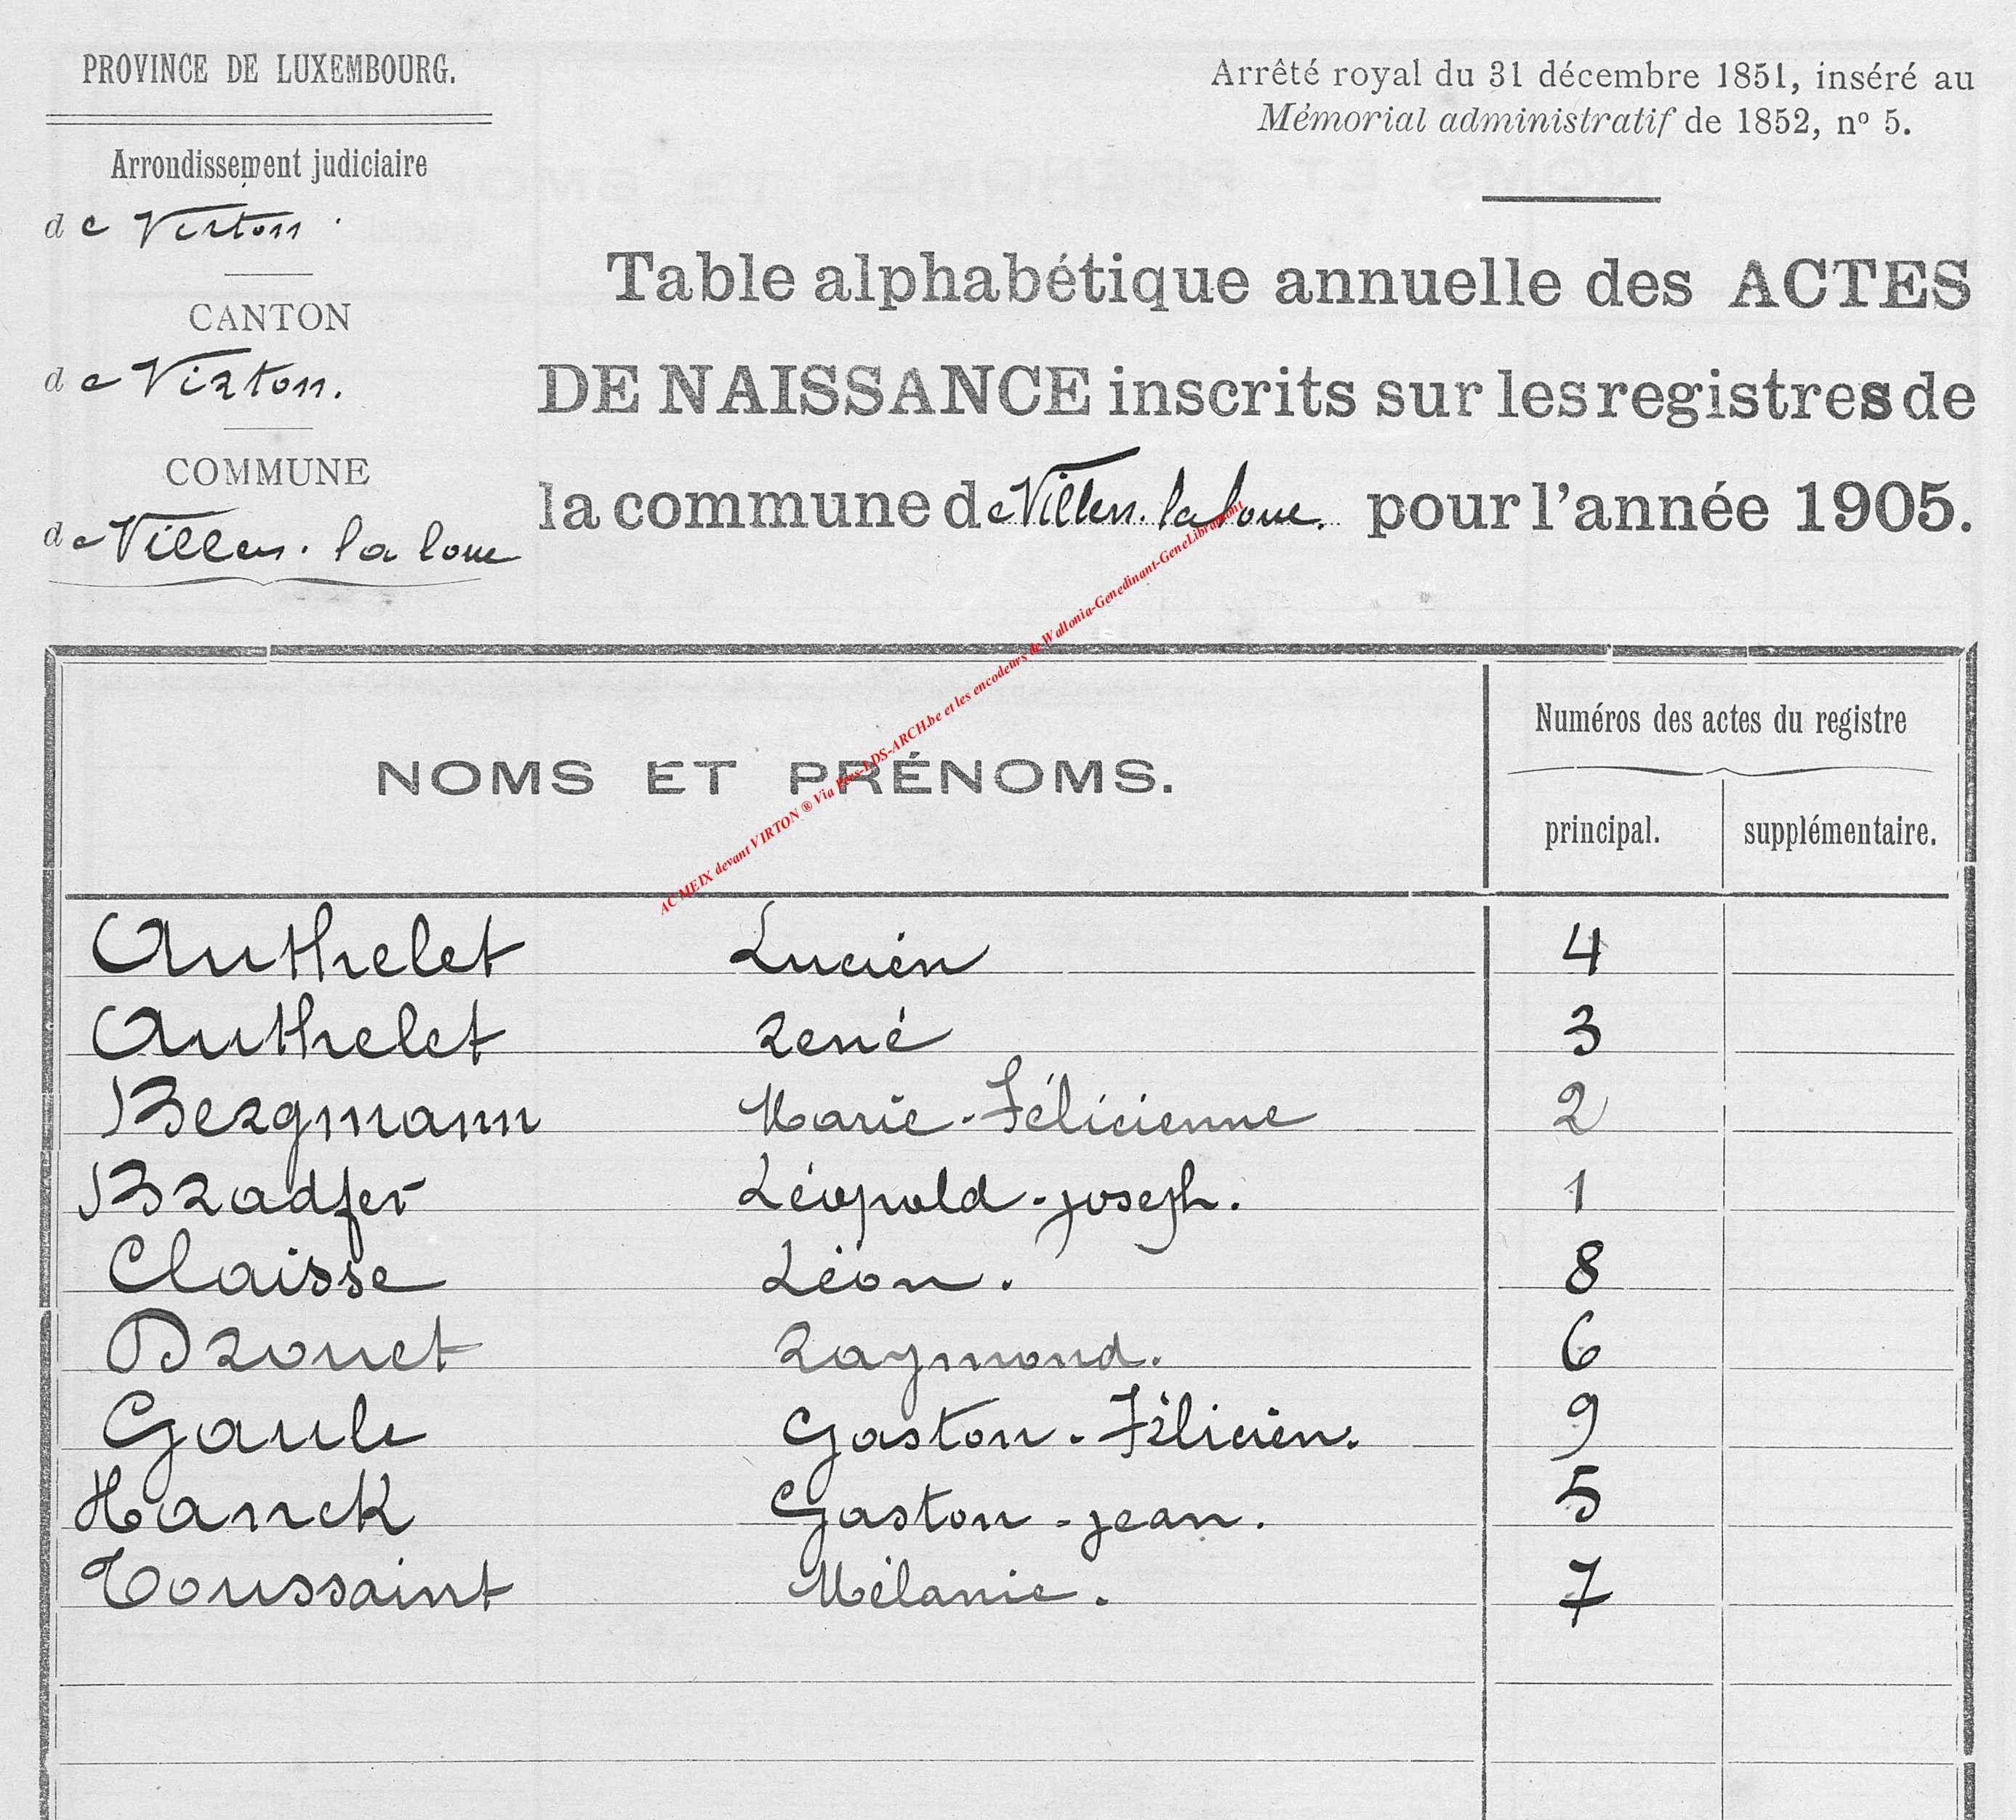 PROVINCE DE LUXEMBOURG.
Arrondissement judiciaire
de Virton.
CANTON
de Virton.
COMMUNE
de Villers-la loue
Arrêté royal du 31 décembre 1851, inséré au
Mémorial administratif de 1852, nº 5.
Table alphabétique annuelle des ACTES
DE NAISSANCE inscrits sur les registres de
la commune de Villers-la loue. pour l'année 1905.
AC MEIX devant VIRTON ® Via Fees-LDS-ARCH.be et les encodeurs de Wallonia-Genedinant-GeneLibramont
NOMS ET PRÉNOMS.
Numéros des actes du registre
principal. supplémentaire.
Authelet Lucien 4
Authelet René 3
Bergmann Marie-Félicienne 2
Bradfer Léopold-joseph. 1
Claisse Léon. 8
Drouet Raymond. 6
Gaule Gaston-Félicien. 9
Hanck Gaston-jean. 5
Toussaint Mélanie. 7